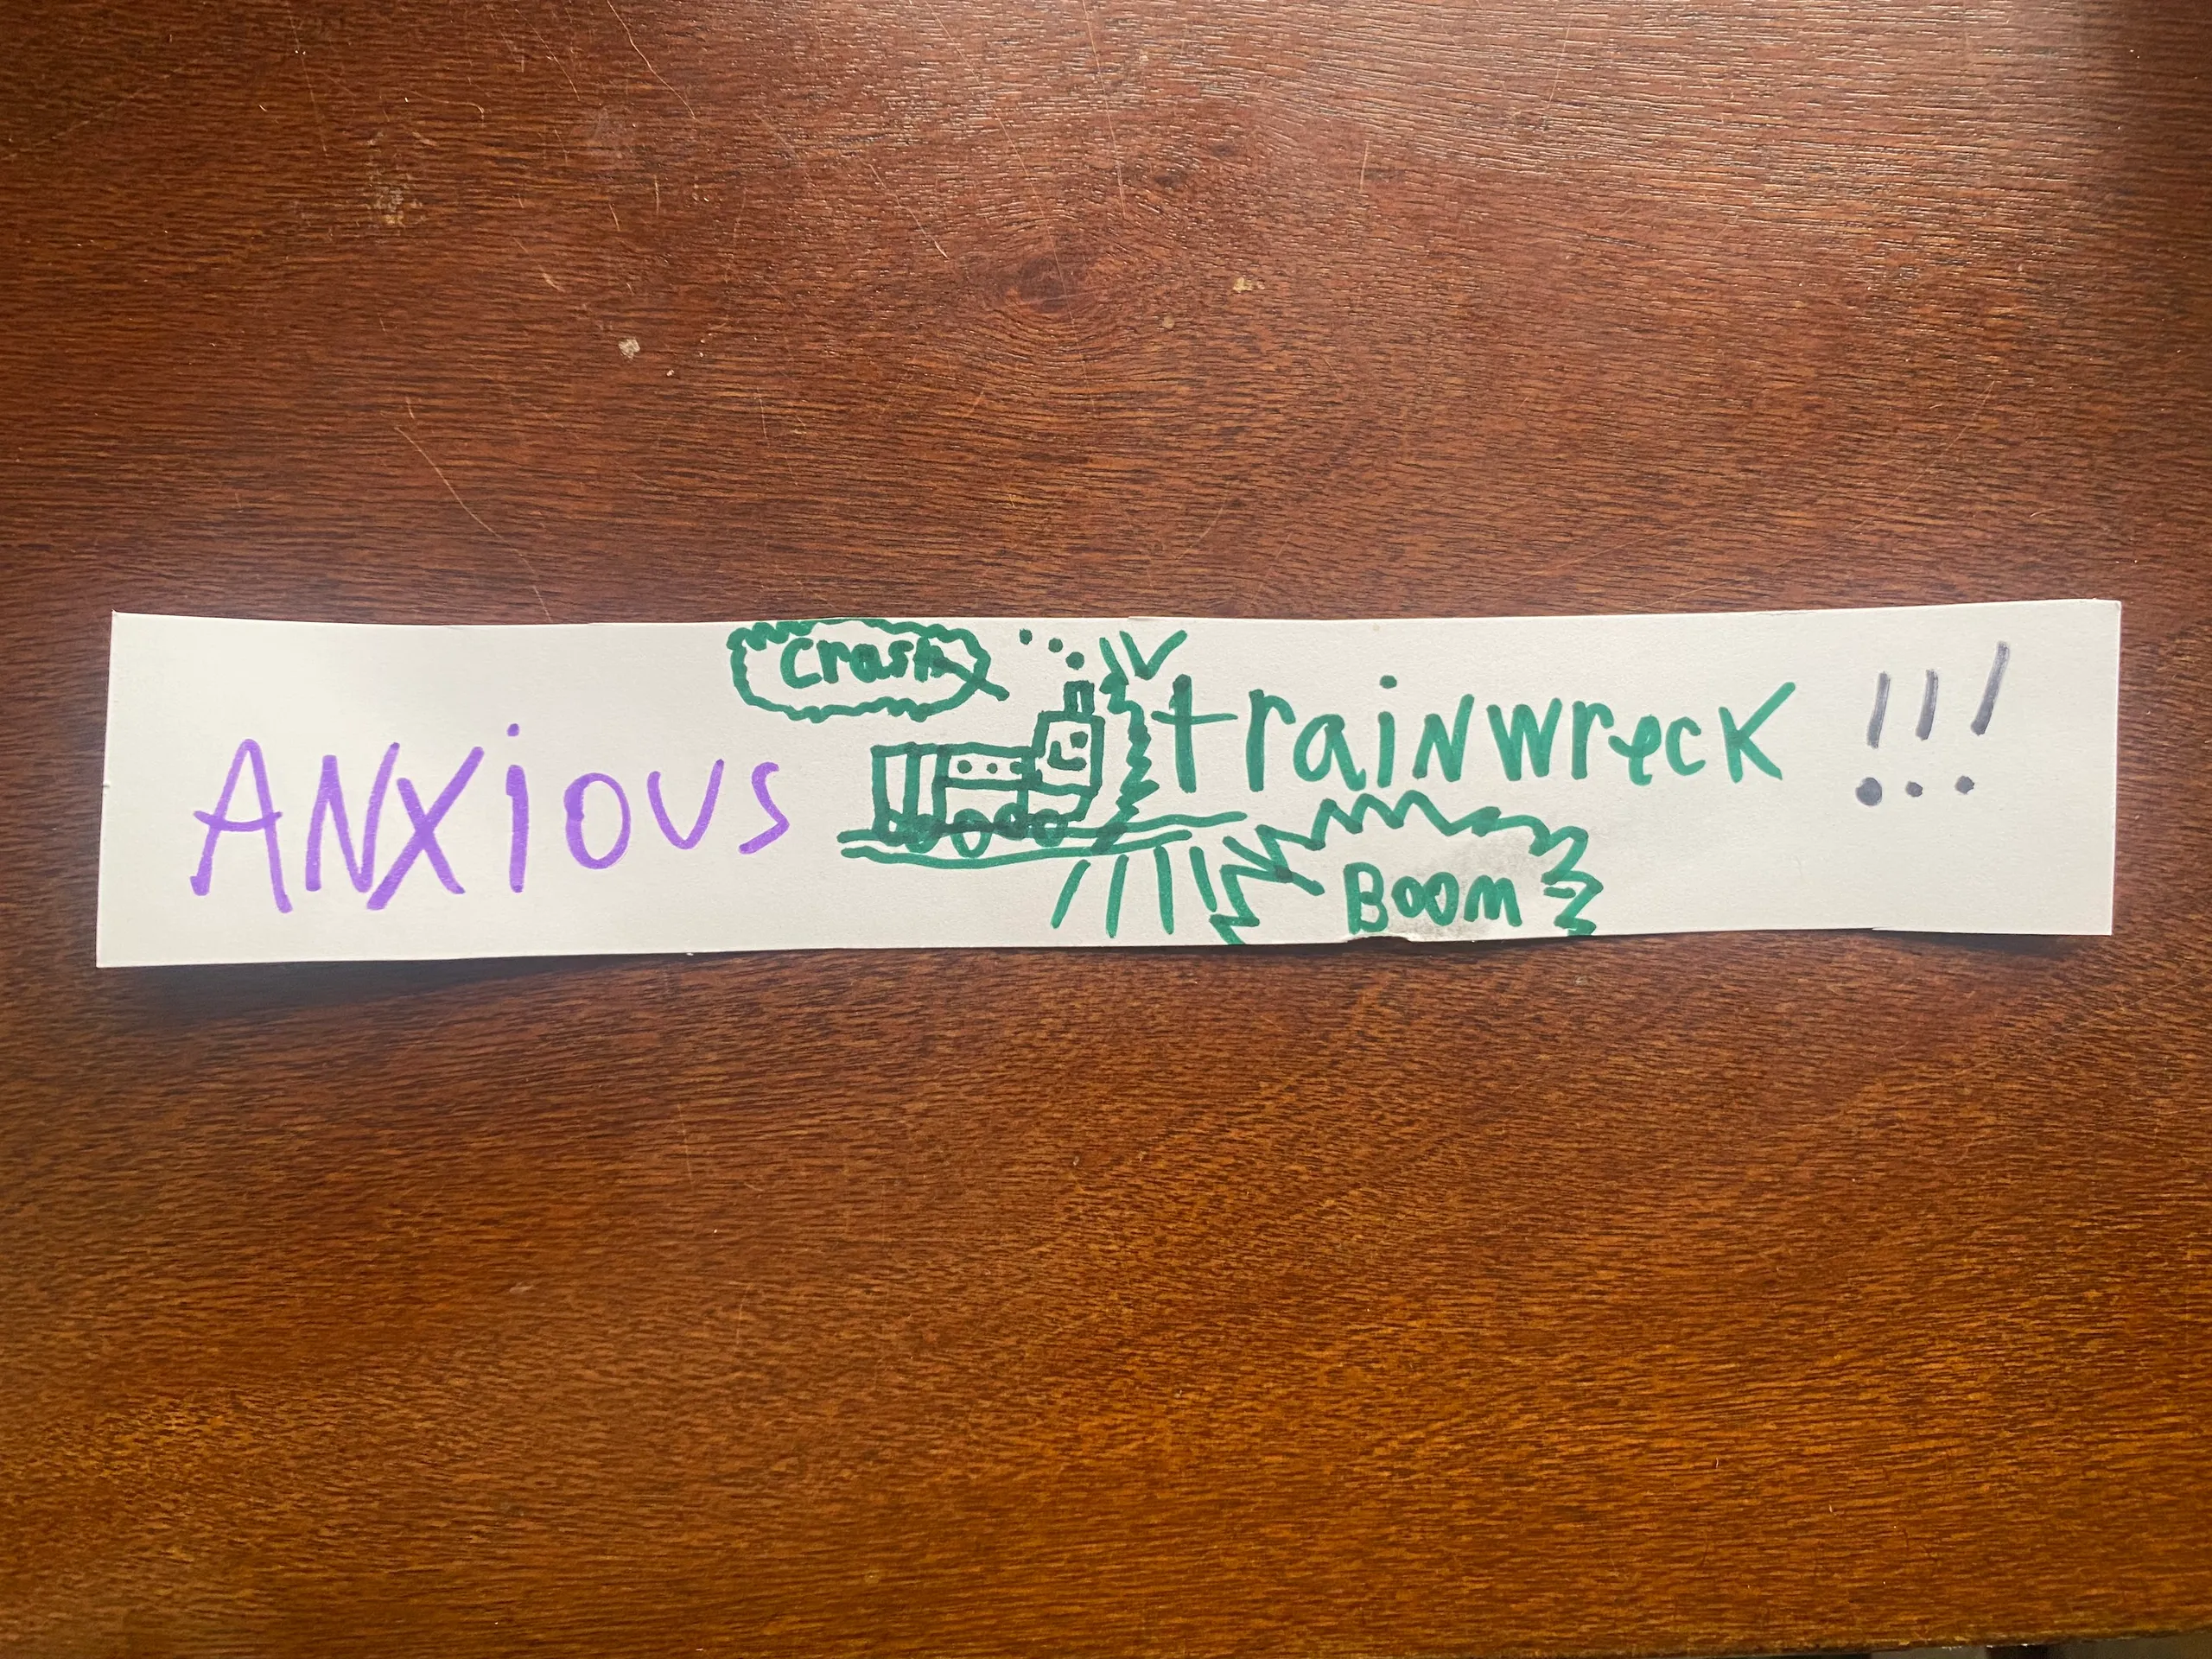 Crash
ANXiOUS trainwreck !!!
BOOM